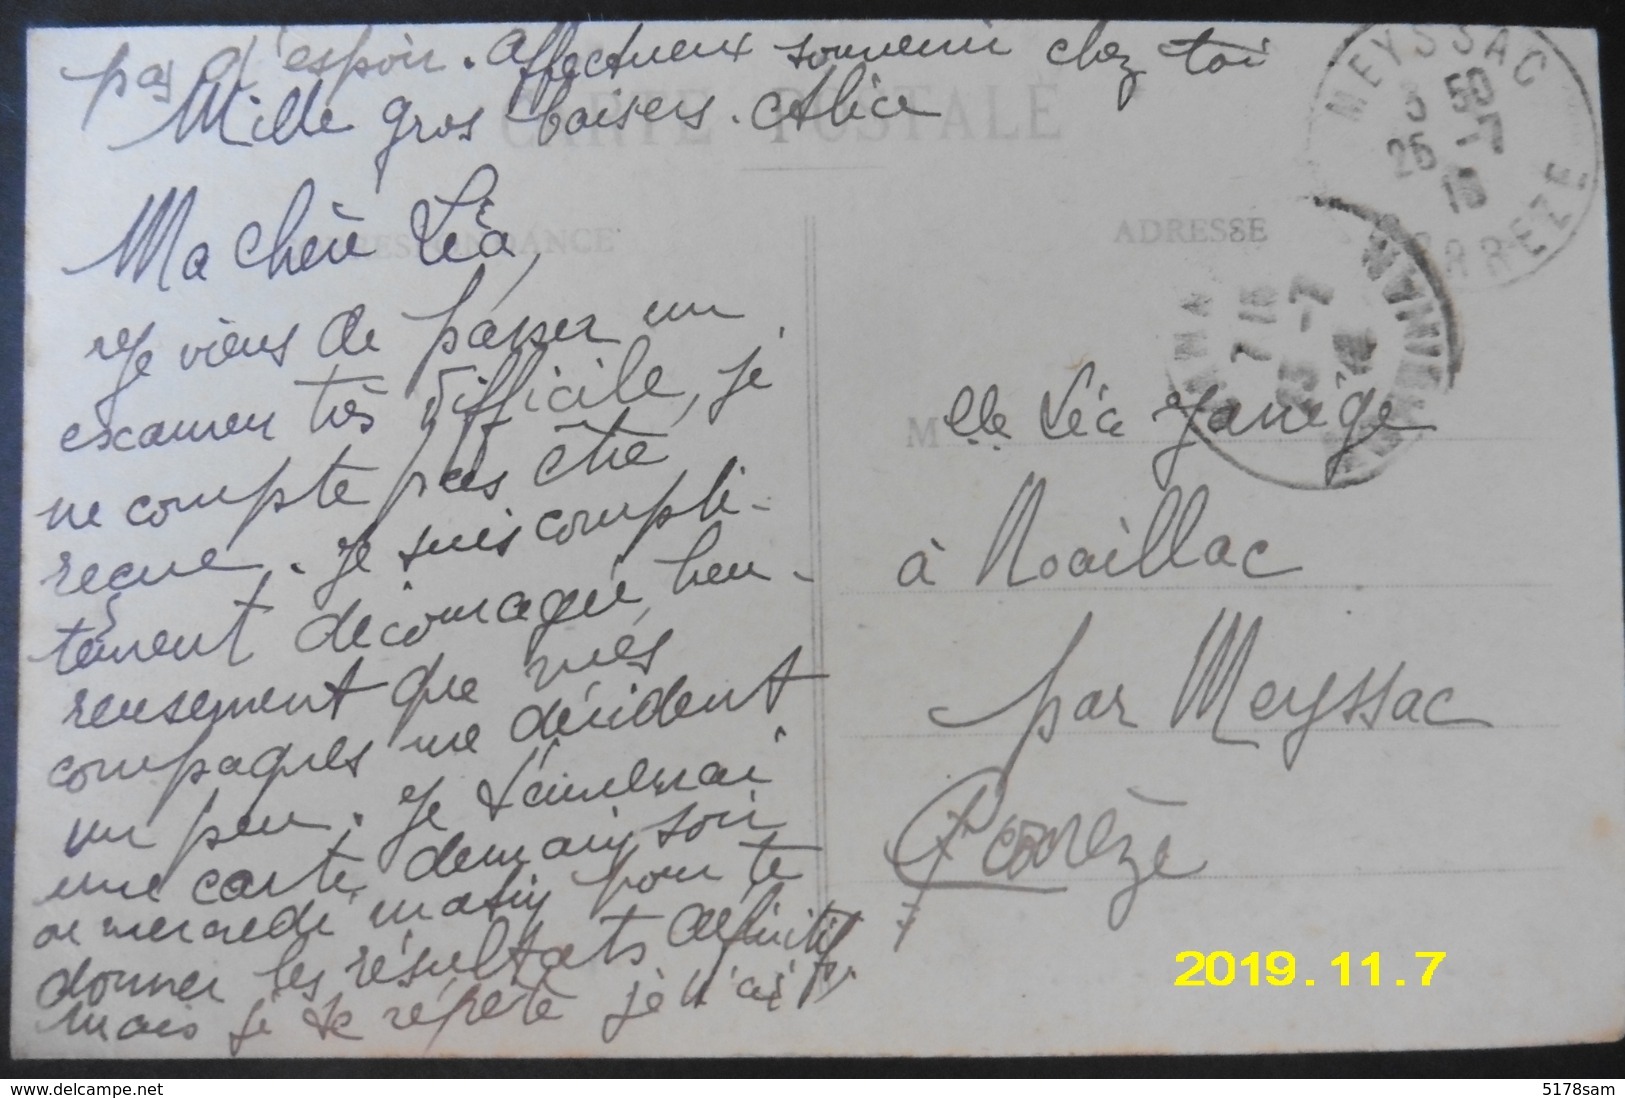 pas d'espoir. Affectueux souvenir chez toi
Mille gros baisers. Alice
CARTE POSTALE
Ma chère Léa,
Je viens de passer un
examen très difficile, je
ne compte pas être
reçue. Je suis compli-
tement découragée, heu-
reusement que mes
compagnes me décident
un peu. Je t'enverrai
une carte demain soir
ou mercredi matin pour te
donner les résultats définitifs
mais je te répète je n'ai
CORRESPONDANCE
ADRESSE
MEYSSAC
CORREZE
M elle Léa
à Noaillac
par Meyssac
Corrèze
2019.11.7
www.delcampe.net
5178sam